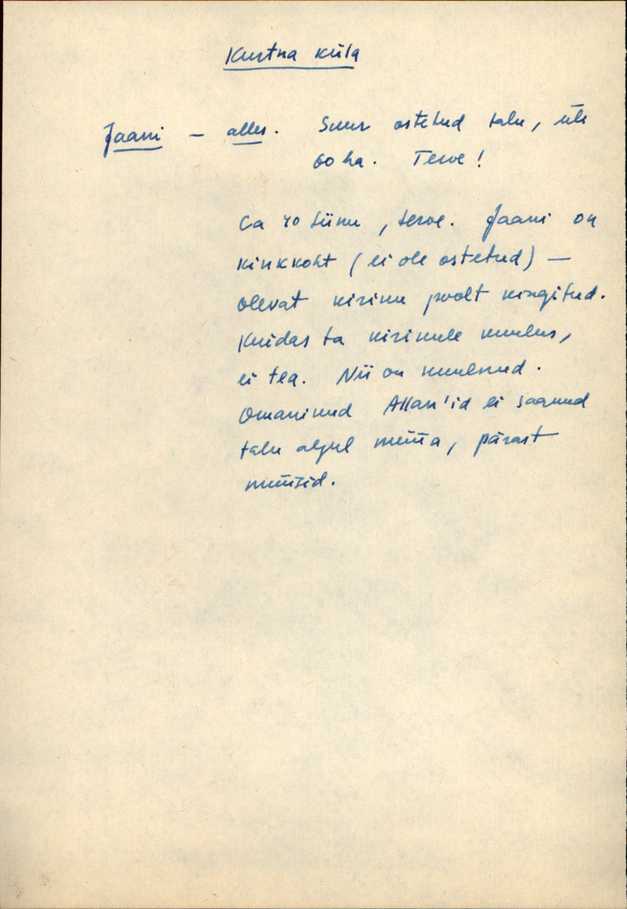 Kurtna küla
Jaani – alles. Suur ostetud talu, üle
60 ha. Terve!
Ca 40 tiinu, terve. Jaani on
kinkkoht (ei ole ostetud) –
olevat kiriku poolt kingitud.
Kuidas ta kirikule kuulus,
ei tea. Nii on kuulnud.
Omanikud Allan'id ei saanud
talu algul müüa, pärast
müüsid.